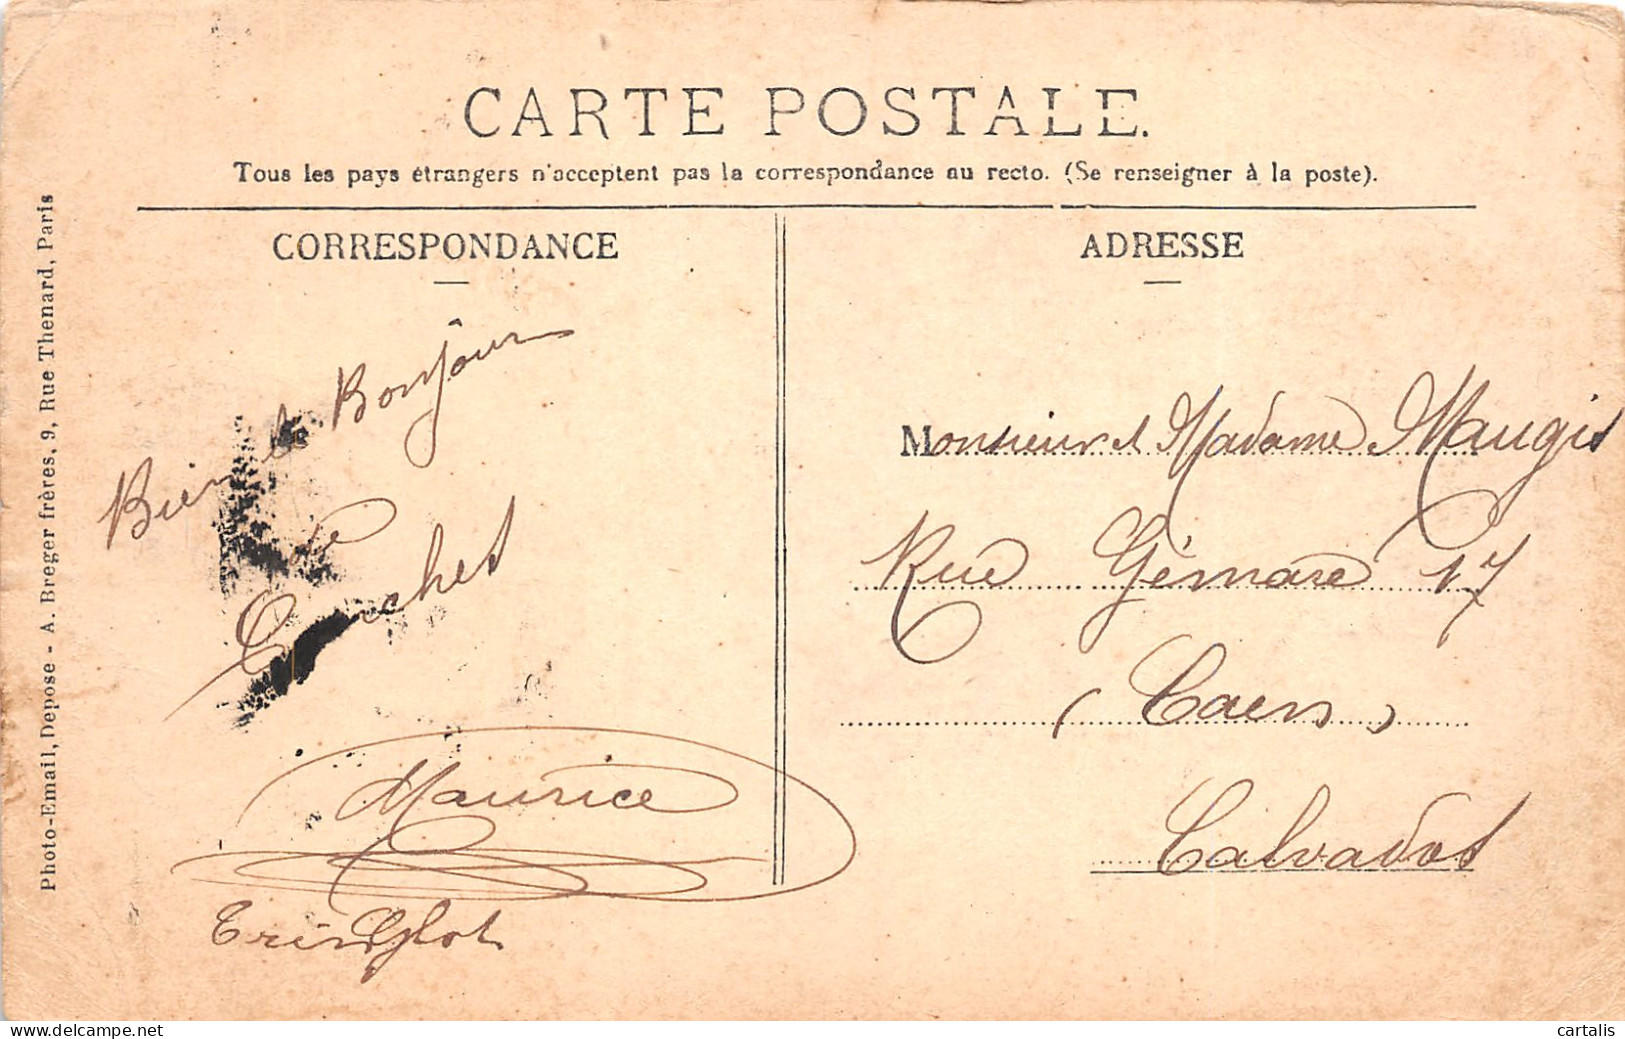 CARTE POSTALE.
Tous les pays étrangers n'acceptent pas la correspondance au recto. (Se renseigner à la poste).
CORRESPONDANCE
Bien le Bonjour
de
Maurice
ADRESSE
Monsieur et Madame Maugis
Rue Gémare 17
(Caen)
Calvados
Photo-Email, Depose - A. Breger frères, 9, Rue Thenard, Paris
cartalis